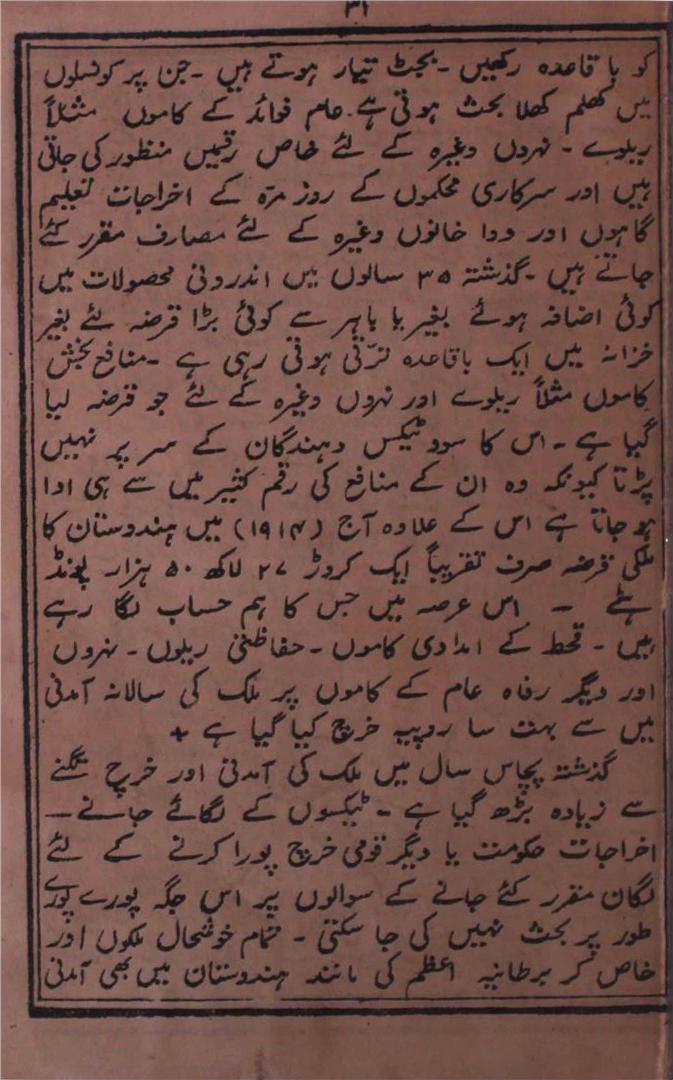 ۳۱
کو با قاعدہ رکھیں ۔ بجٹ تیار ہوتے ہیں ۔ جن پر کونسلوں
میں کھلم کھلا بحث ہوتی ہے ۔ عام فوائد کے کاموں مثلاً
ریلوے ۔ نہروں وغیرہ کے لئے خاص رقمیں منظور کی جاتی
ہیں اور سرکاری محکموں کے روز مرّہ کے اخراجات تعلیم
گاہوں اور دوا خانوں وغیرہ کے لئے مصارف مقرر کئے
جاتے ہیں ۔ گذشتہ ۳۵ سالوں میں اندرونی محصولات میں
کوئی اضافہ ہوئے بغیر یا باہر سے کوئی بڑا قرضہ لئے بغیر
خزانہ میں ایک باقاعدہ ترّقی ہوتی رہی ہے ۔ منافع بخش
کاموں مثلاً ریلوے اور نہروں وغیرہ کے لئے جو قرضہ لیا
گیا ہے ۔ اس کا سود ٹیکس دہندگان کے سر پر نہیں
پڑتا کیونکہ وہ ان کے منافع کی رقم کثیر میں سے ہی ادا
ہو جاتا ہے اس کے علاوہ آج (۱۹۱۴) میں ہندوستان کا
ملکی قرضہ صرف تقریباً ایک کروڑ ۲۷ لاکھ ۵۰ ہزار پونڈ
ہے ۔ اس عرصہ میں جس کا ہم حساب لگا رہے
ہیں ۔ قحط کے امدادی کاموں ۔ حفاظتی ریلوں ۔ نہروں
اور دیگر رفاہ عام کے کاموں پر ملک کی سالانہ آمدنی
میں سے بہت سا روپیہ خرچ کیا گیا ہے +
گذشتہ پچاس سال میں ملک کی آمدنی اور خرچ تگنے
سے زیادہ بڑھ گیا ہے ۔ ٹیکسوں کے لگائے جانے ۔
اخراجات حکومت یا دیگر قومی خرچ پورا کرنے کے لئے
لگان مقرر کئے جانے کے سوالوں پر اس جگہ پورے پورے
طور پر بحث نہیں کی جا سکتی ۔ تمام خوشحال ملکوں اور
خاص کر برطانیہ اعظم کی مانند ہندوستان میں بھی آمدنی